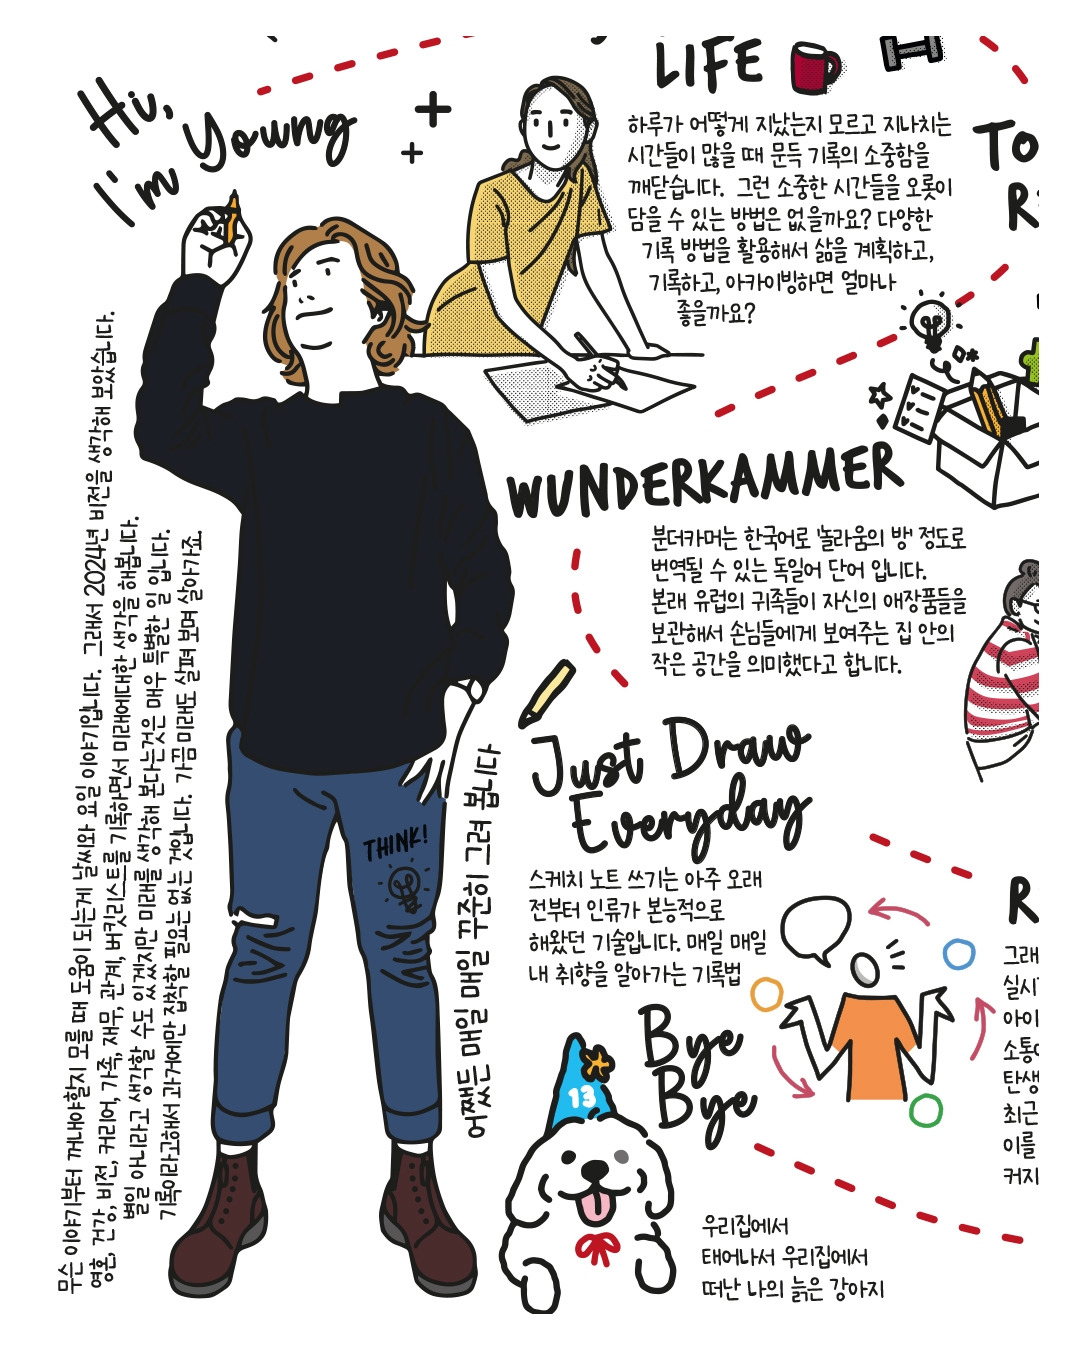 Hi,
I'm Young
LIFE
하루가 어떻게 지났는지 모르고 지나치는
시간들이 많을 때 문득 기록의 소중함을
깨닫습니다. 그런 소중한 시간들을 오롯이
담을 수 있는 방법은 없을까요? 다양한
기록 방법을 활용해서 삶을 계획하고,
기록하고, 아카이빙하면 얼마나
좋을까요?
TO
R
WUNDERKAMMER
분더카머는 한국어로 '놀라움의 방' 정도로
번역될 수 있는 독일어 단어 입니다.
본래 유럽의 귀족들이 자신의 애장품들을
보관해서 손님들에게 보여주는 집 안의
작은 공간을 의미했다고 합니다.
무슨 이야기부터 꺼내야할지 모를 때 도움이 되는게 날씨와 요일 이야기입니다. 그래서 2024년 비전을 생각해 보았습니다.
영혼, 건강, 비전, 커리어, 가족, 재무, 관계, 버킷리스트를 기록하면서 미래에대한 생각을 해봅니다.
별일 아니라고 생각할 수도 있겠지만 미래를 생각해 본다는것은 매우 특별한 일 입니다.
기록이라고해서 과거에만 집착할 필요는 없는 것입니다. 가끔 미래도 살펴 보며 살아가죠.
THINK!
어쨌든 매일 매일 꾸준히 그려 봅니다
Just Draw
Everyday
스케치 노트 쓰기는 아주 오래
전부터 인류가 본능적으로
해왔던 기술입니다. 매일 매일
내 취향을 알아가는 기록법
R
그래
실시
아이
소통
탄생
최근
이를
커지
Bye
Bye
13
우리집에서
태어나서 우리집에서
떠난 나의 늙은 강아지